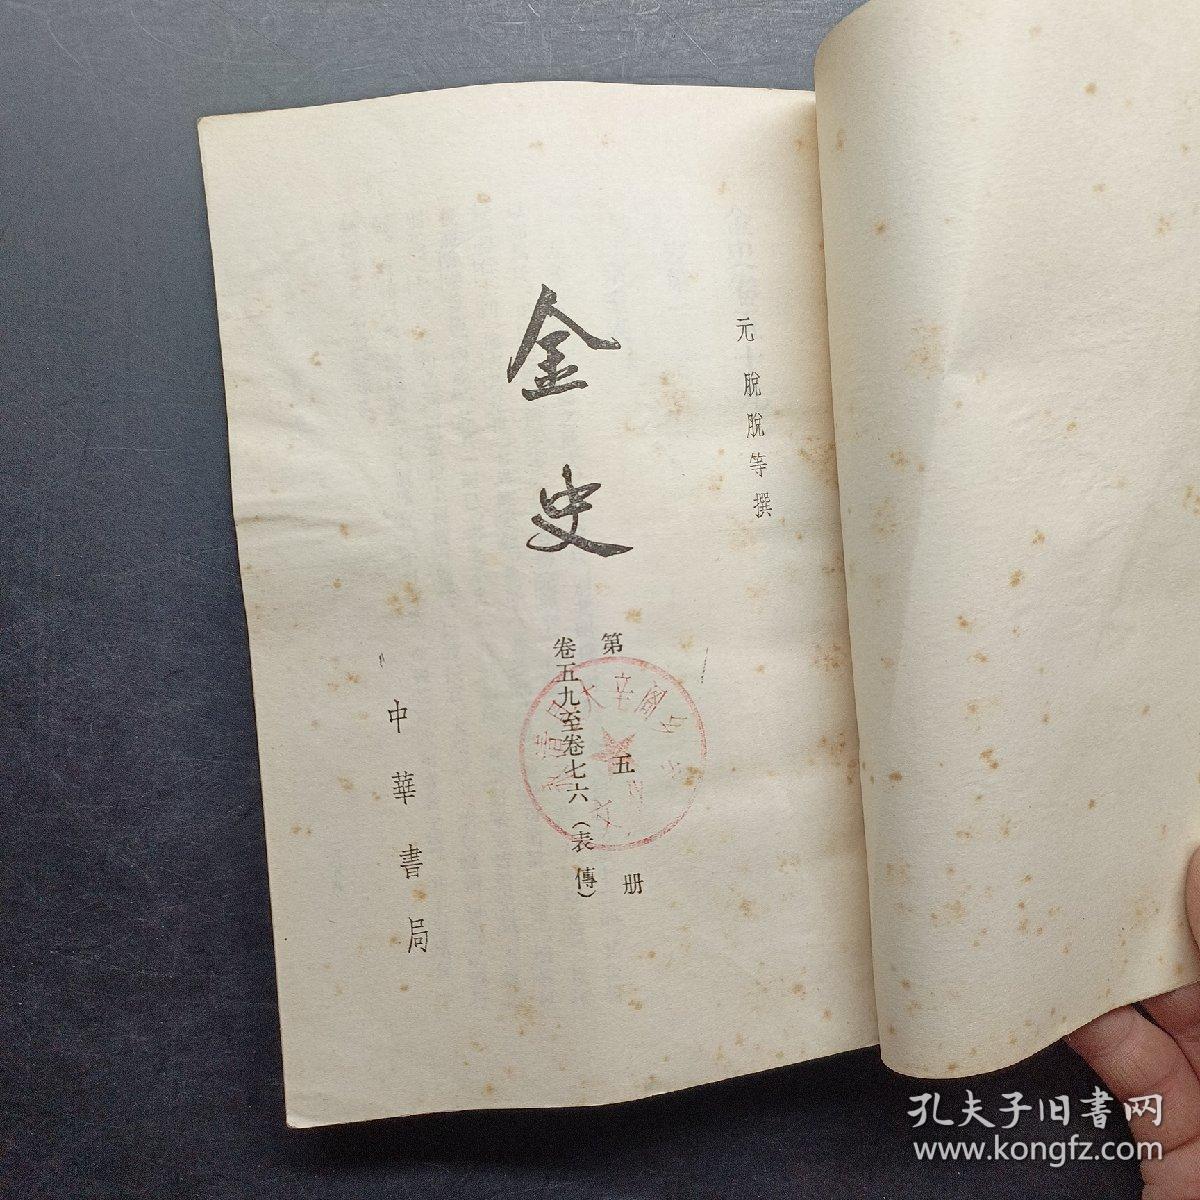 元 脫脫等撰
金史
第五册
卷五九至卷七六(表傳)
中華書局
孔夫子旧書网
www.kongfz.com